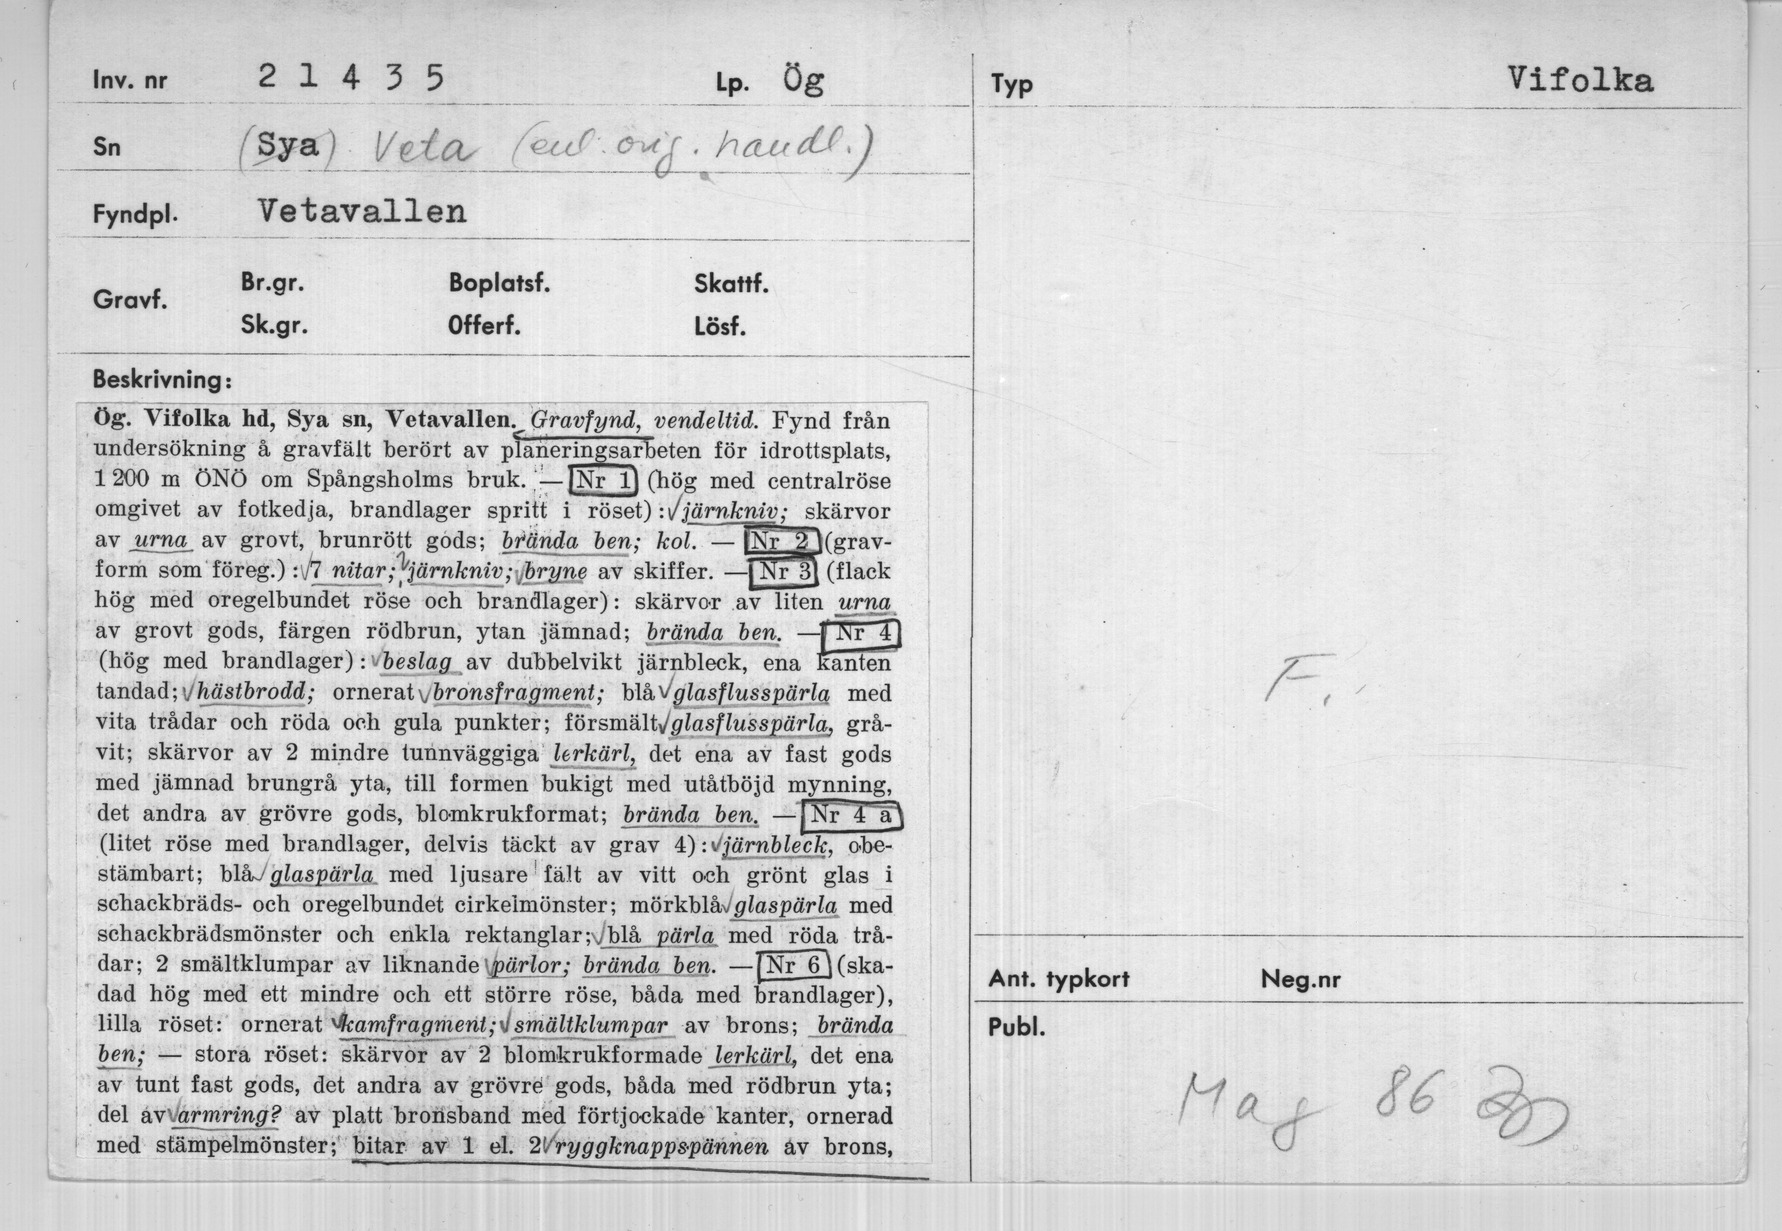 Inv. nr 2 1 4 3 5 Lp. Ög
Sn (Sya) Veta (enl. orig. handl.)
Fyndpl. Vetavallen
Gravf. Br.gr. Boplatsf. Skattf.
Sk.gr. Offerf. Lösf.
Beskrivning:
Ög. Vifolka hd, Sya sn, Vetavallen. Gravfynd, vendeltid. Fynd från
undersökning å gravfält berört av planeringsarbeten för idrottsplats,
1 200 m ÖNÖ om Spångsholms bruk. — Nr 1 (hög med centralröse
omgivet av fotkedja, brandlager spritt i röset): järnkniv; skärvor
av urna av grovt, brunrött gods; brända ben; kol. — Nr 2 (grav-
form som föreg.): 7 nitar; ? järnkniv; bryne av skiffer. — Nr 3 (flack
hög med oregelbundet röse och brandlager): skärvor av liten urna
av grovt gods, färgen rödbrun, ytan jämnad; brända ben. — Nr 4
(hög med brandlager): beslag av dubbelvikt järnbleck, ena kanten
tandad; hästbrodd; ornerat bronsfragment; blå glasflusspärla med
vita trådar och röda och gula punkter; försmält glasflusspärla, grå-
vit; skärvor av 2 mindre tunnväggiga lerkärl, det ena av fast gods
med jämnad brungrå yta, till formen bukigt med utåtböjd mynning,
det andra av grövre gods, blomkrukformat; brända ben. — Nr 4 a
(litet röse med brandlager, delvis täckt av grav 4): järnbleck, obe-
stämbart; blå glaspärla med ljusare fält av vitt och grönt glas i
schackbräds- och oregelbundet cirkelmönster; mörkblå glaspärla med
schackbrädsmönster och enkla rektanglar; blå pärla med röda trå-
dar; 2 smältklumpar av liknande pärlor; brända ben. — Nr 6 (ska-
dad hög med ett mindre och ett större röse, båda med brandlager),
lilla röset: ornerat kamfragment; smältklumpar av brons; brända
ben; — stora röset: skärvor av 2 blomkrukformade lerkärl, det ena
av tunt fast gods, det andra av grövre gods, båda med rödbrun yta;
del av armring? av platt bronsband med förtjockade kanter, ornerad
med stämpelmönster; bitar av 1 el. 2 ryggknappspännen av brons,
Typ Vifolka
F.
Ant. typkort Neg.nr
Publ.
Mag 86